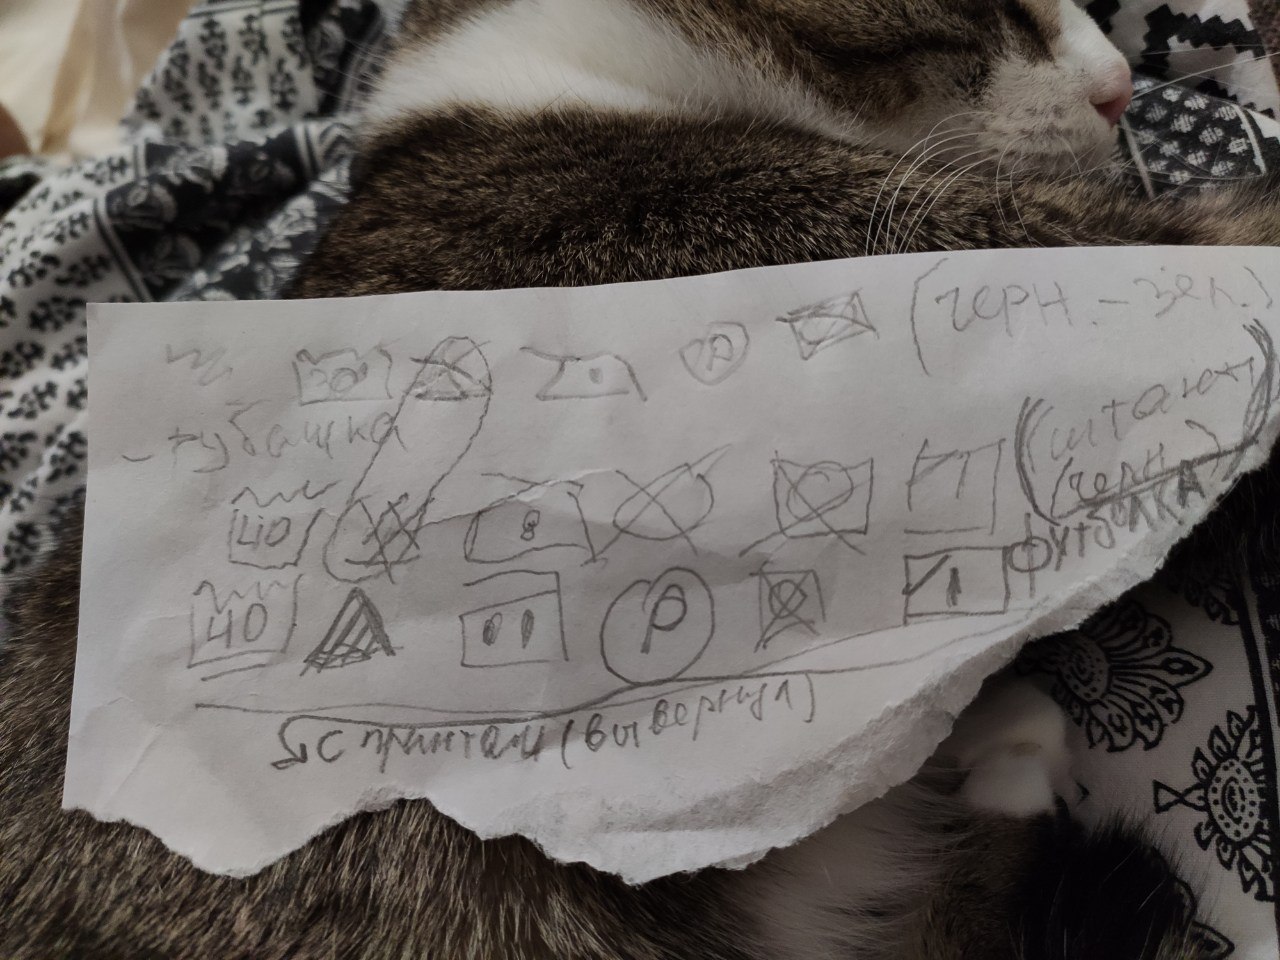 30 P (черн. - зел.)
рубашка
(штаны)
40 (черн.)
40 P футболка
с принтом (вывернул)